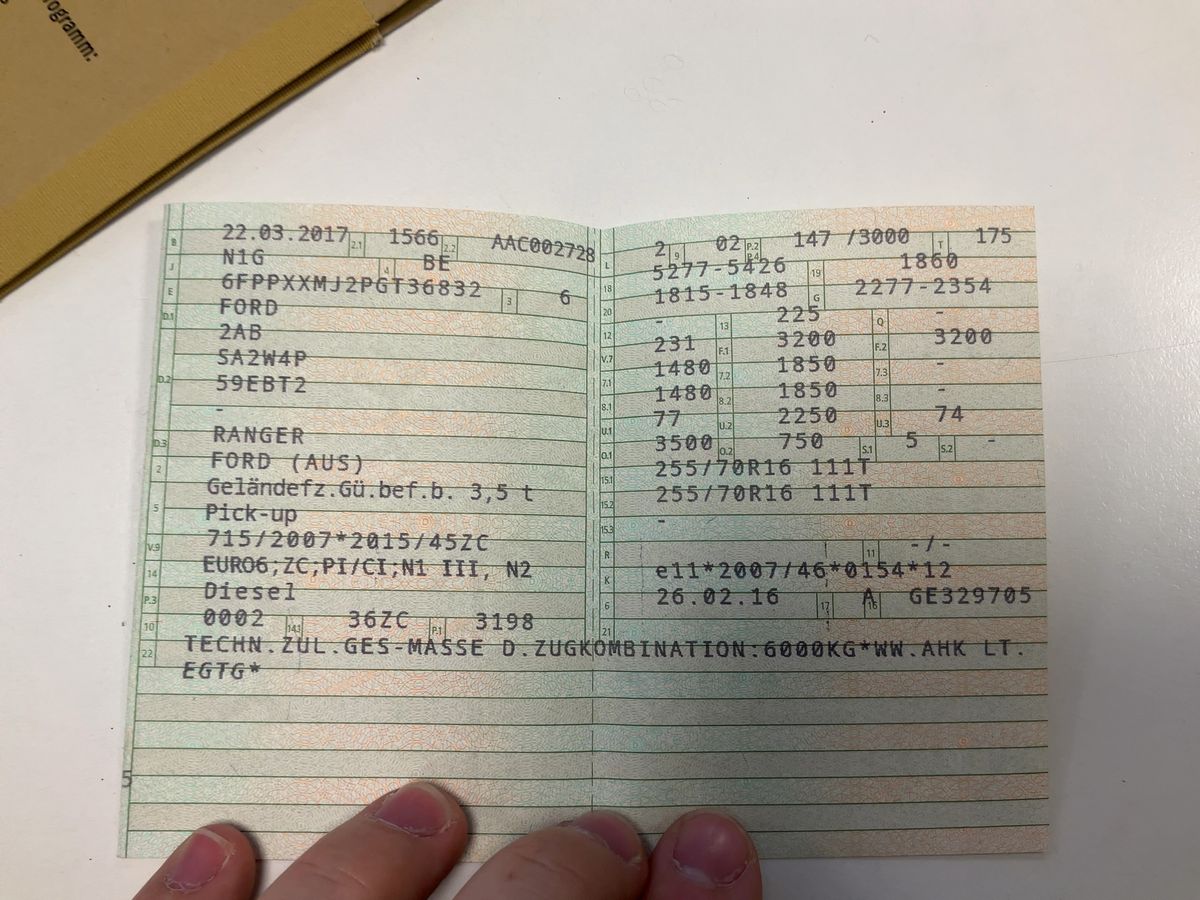 rogramm:
B 22.03.2017 2.1 1566 2.2 AAC002728
J N1G 4 BE
E 6FPPXXMJ2PGT36832 3 6
D.1 FORD
2AB
D.2 SA2W4P
59EBT2
-
D.3 RANGER
2 FORD (AUS)
5 Geländefz.Gü.bef.b. 3,5 t
Pick-up
V.9 715/2007*2015/45ZC
14 EURO6;ZC;PI/CI;N1 III, N2
P.3 Diesel
10 0002 14.1 36ZC P.1 3198
L 2 9 02 P.2 P.4 147 /3000 T 175
18 5277-5426 19 1860
20 1815-1848 G 2277-2354
12 - 13 225 Q -
V.7 231 F.1 3200 F.2 3200
7.1 1480 7.2 1850 7.3 -
8.1 1480 8.2 1850 8.3 -
U.1 77 U.2 2250 U.3 74
O.1 3500 O.2 750 S.1 5 S.2 -
15.1 255/70R16 111T
15.2 255/70R16 111T
15.3 -
R 11 -/-
K e11*2007/46*0154*12
6 26.02.16 17 A 16 GE329705
21
22 TECHN.ZUL.GES-MASSE D.ZUGKOMBINATION:6000KG*WW.AHK LT.
EGTG*
5